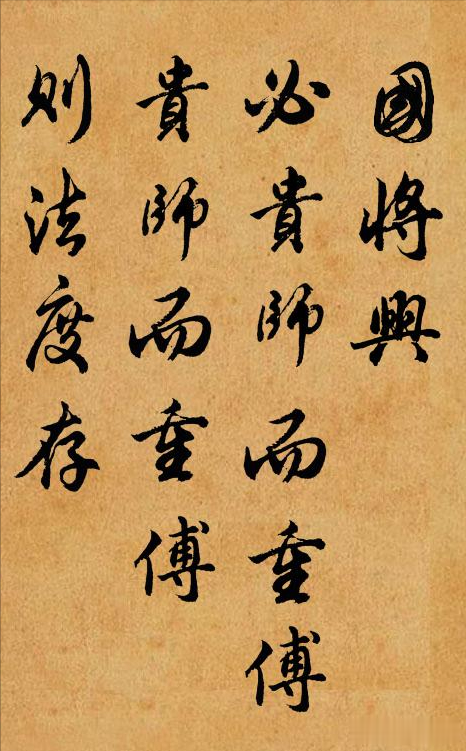 國將興
必貴師而重傅
貴師而重傅
則法度存